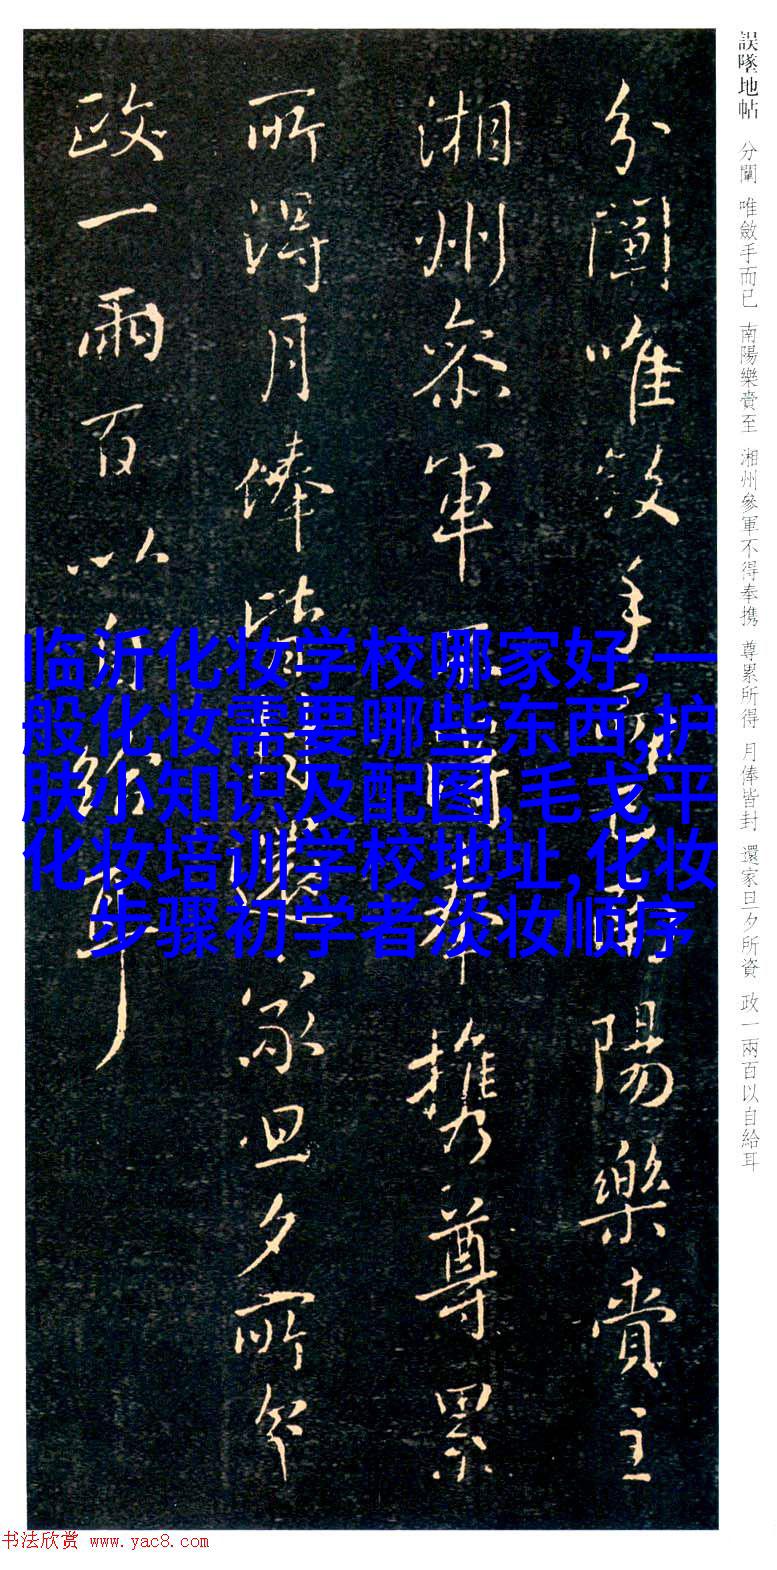 誤墜地帖 分闈 唯斂手而已 南陽樂賁至 湘州參軍不得奉携 尊累所得 月俸皆封 還家旦夕所資 政一兩百以自給耳
分闈唯斂手而已南陽樂賁至
湘州參軍不得奉攜尊累
所得月俸皆封還家旦夕所資
政一兩百以自給耳
临沂化妆学校哪家好,一
般化妆需要哪些东西,护
肤小知识及配图,毛戈平
化妆培训学校地址,化妆
步骤初学者淡妆顺序
书法欣赏 www.yac8.com